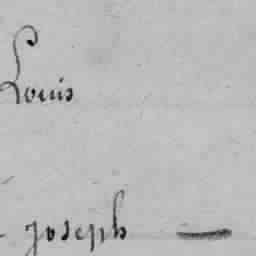 Louis
joseph —